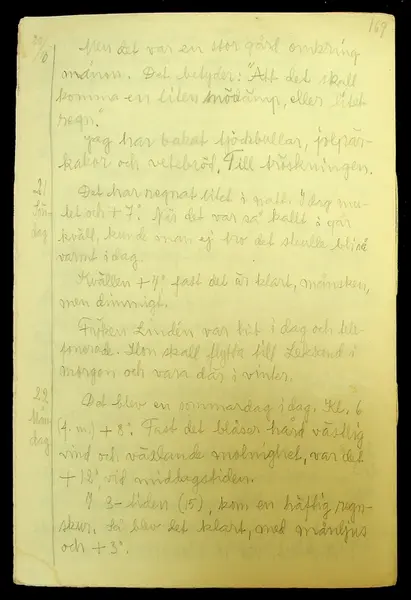 169
20/10
Men det var en stor gård omkring
månen. Det betyder: "Att det skall
komma en liten snödämp, eller litet
regn."
Jag har bakat tjockbullar, jolpär-
kakor och vetebröd. Till tröskningen.
21 Sön-dag
Det har regnat litet i natt. I dag mu-
let och + 7°. När det var så kallt i går
kväll, kunde man ej tro det skulle bli så
varmt i dag.
Kvällen + 4° fast det är klart, månsken,
men dimmigt.
Fröken Lindén var hit i dag och tele-
fonerade. Hon skall flytta till Leksand i
morgon och vara där i vinter.
22 Mån-dag
Det blev en sommardag i dag. Kl. 6
(f. m.) + 8°. Fast det blåser hård västlig
vind och växlande molnighet, var det
+ 12° vid middagstiden.
I 3-tiden (15), kom en häftig regn-
skur. Så blev det klart, med månljus
och + 3°.